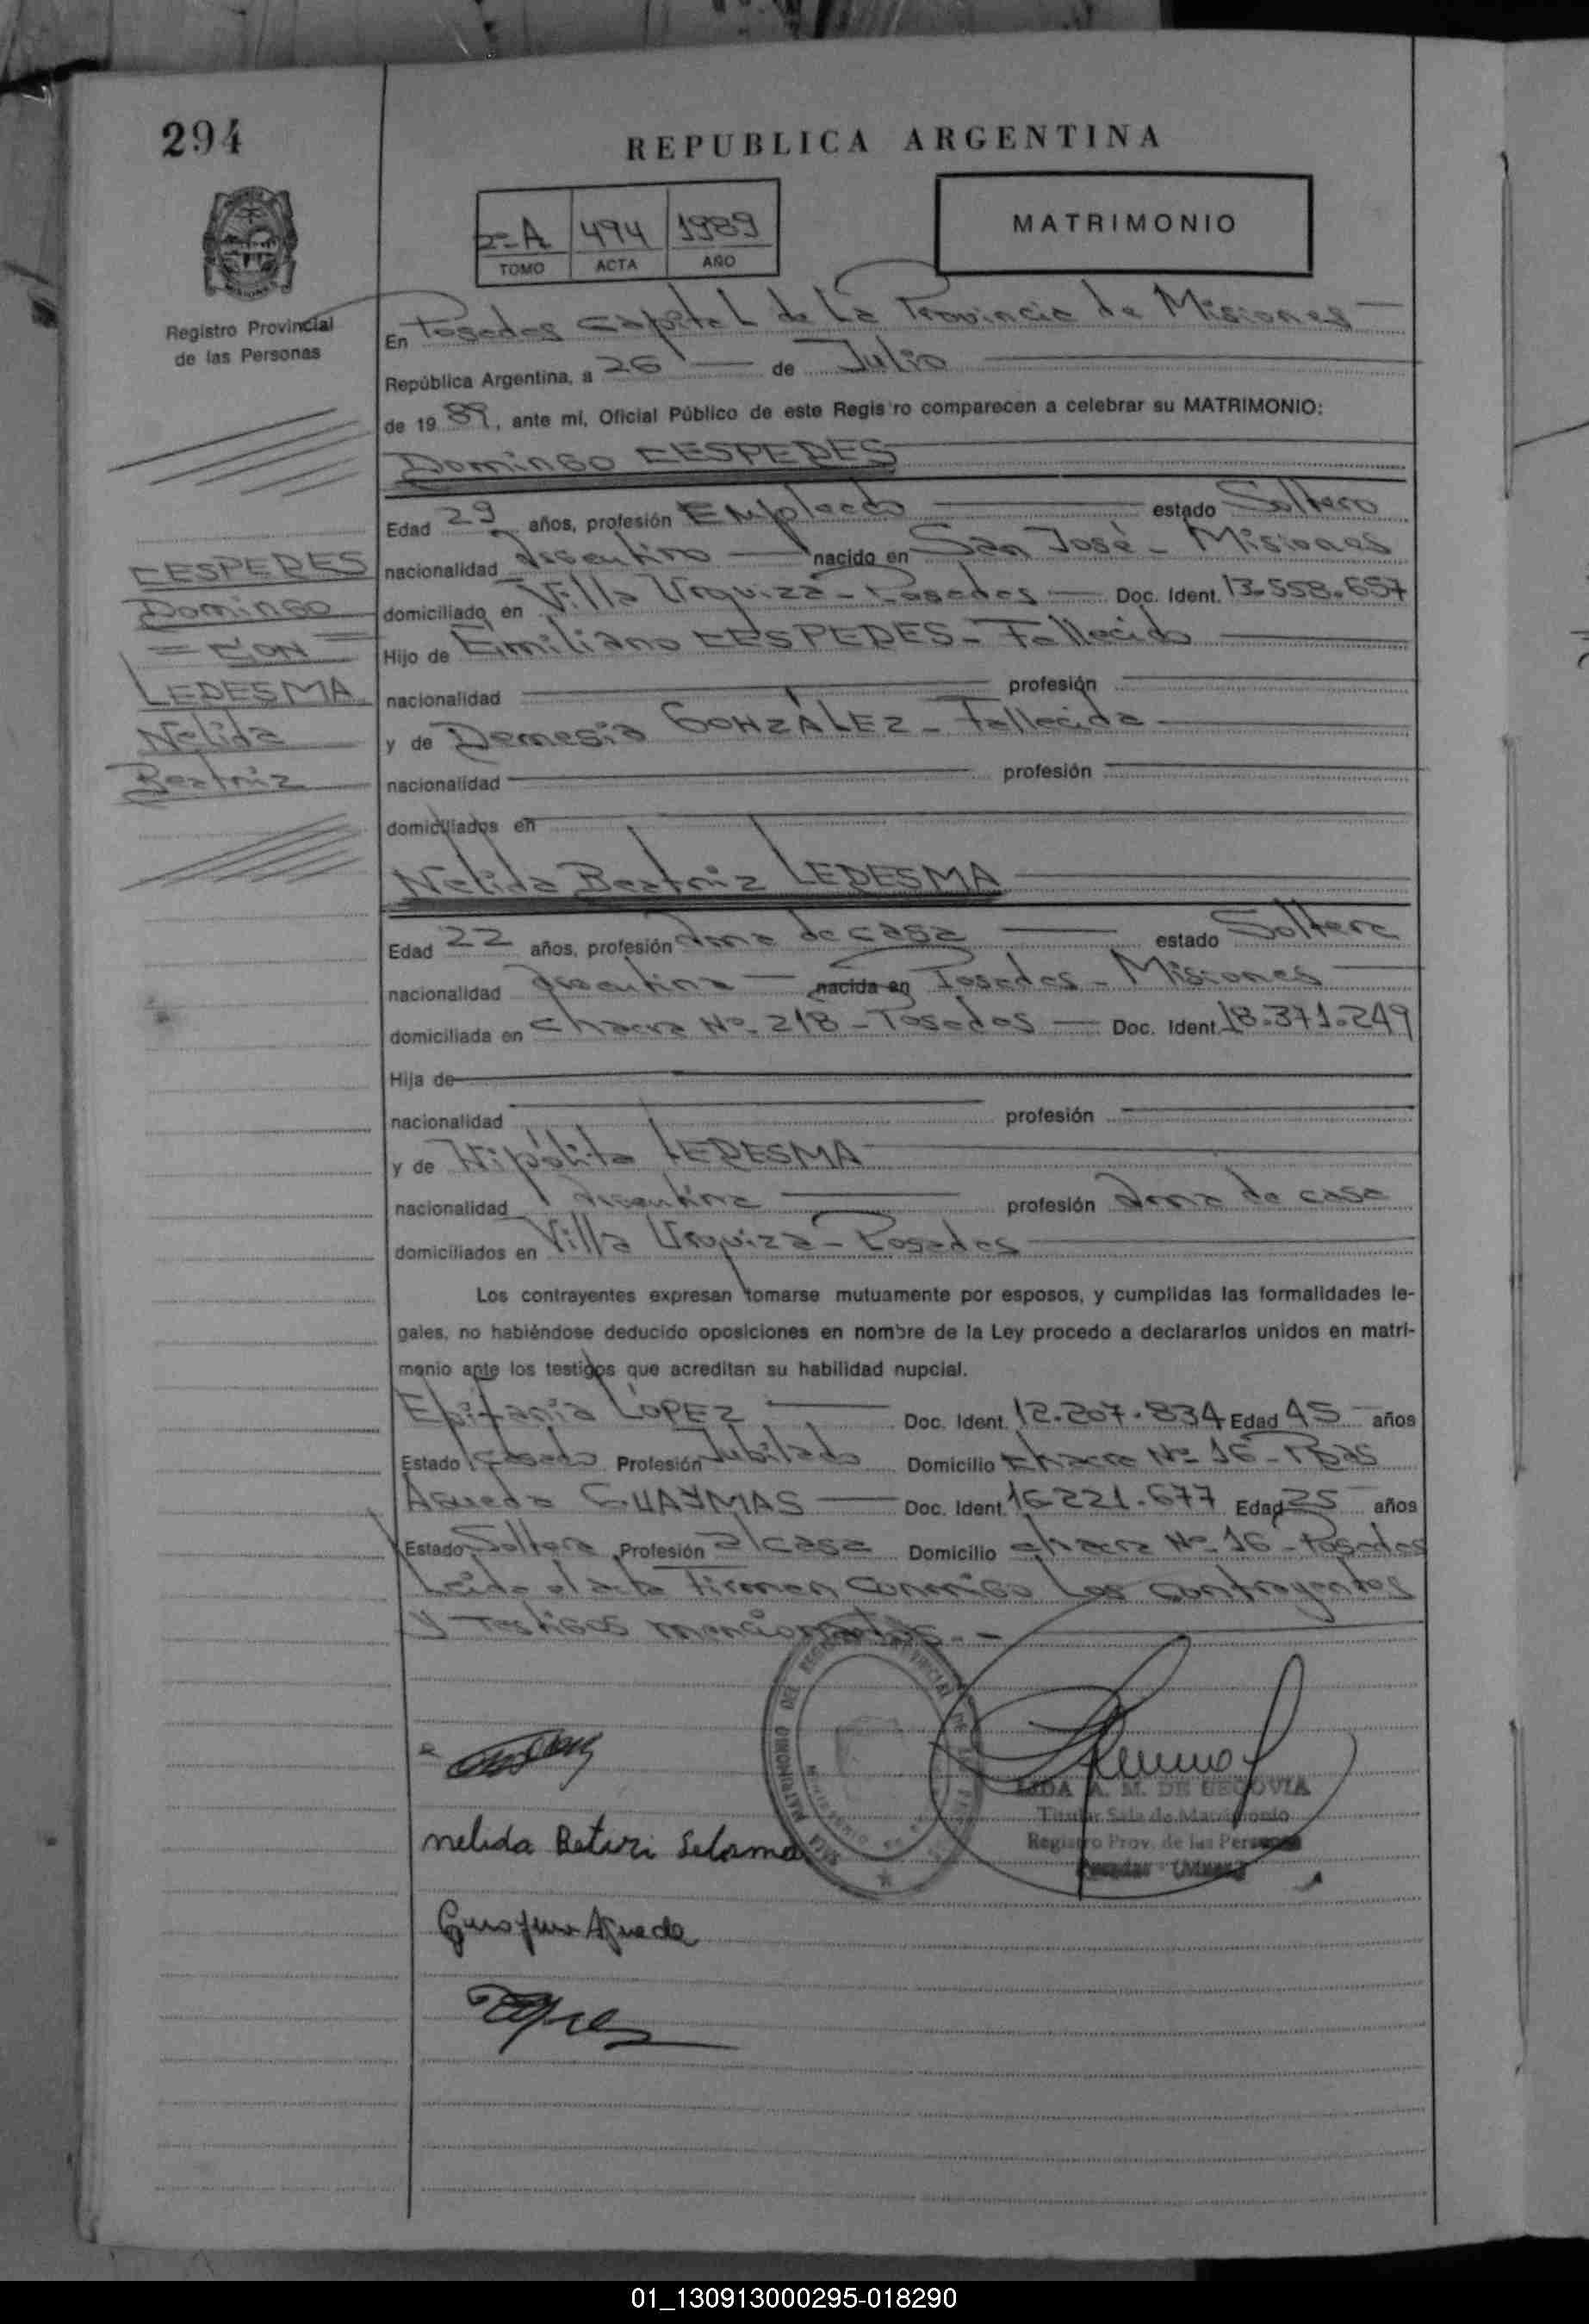 294
REPUBLICA ARGENTINA
2º A 494 1989
TOMO ACTA AÑO
MATRIMONIO
Registro Provincial
de las Personas
En Posadas Capital de La Provincia de Misiones
República Argentina, a 26 de Julio
de 1989, ante mí, Oficial Público de este Registro comparecen a celebrar su MATRIMONIO:
Domingo CESPEDES
Edad 29 años, profesión Empleado estado Soltero
nacionalidad Argentino nacido en San José - Misiones
domiciliado en Villa Urquiza - Posadas Doc. Ident. 13.558.657
Hijo de Emiliano CESPEDES - Fallecido
nacionalidad profesión
y de Demesia GONZÁLEZ - Fallecida
nacionalidad profesión
domiciliados en
CESPEDES
Domingo
= CON =
LEDESMA
Nelida
Beatriz
Nelida Beatriz LEDESMA
Edad 22 años, profesión Ama de casa estado Soltera
nacionalidad Argentina nacida en Posadas - Misiones
domiciliada en Chacra Nº 218 - Posadas Doc. Ident. 18.371.249
Hija de
nacionalidad profesión
y de Hipólita LEDESMA
nacionalidad Argentina profesión Ama de casa
domiciliados en Villa Urquiza - Posadas
Los contrayentes expresan tomarse mutuamente por esposos, y cumplidas las formalidades le-
gales, no habiéndose deducido oposiciones en nombre de la Ley procedo a declararlos unidos en matri-
monio ante los testigos que acreditan su habilidad nupcial.
Epifania LÓPEZ Doc. Ident. 12.207.834 Edad 45 años
Estado Casado Profesión Jubilado Domicilio Chacra Nº 16 - Pdas
Agueda GUAYMAS Doc. Ident. 16.221.677 Edad 25 años
Estado Soltera Profesión a/casa Domicilio chacra Nº 16 - Posadas
Leida el acta Firman conmigo Los contrayentes
y Testigos mencionados.-
SALA MATRIMONIO DEL REGISTRO PROVINCIAL DE
LIDA A. M. DE SEGOVIA
Titular Sala de Matrimonio
Registro Prov. de las Personas
nelida Betiri Ledsma
Agueda
01_130913000295-018290